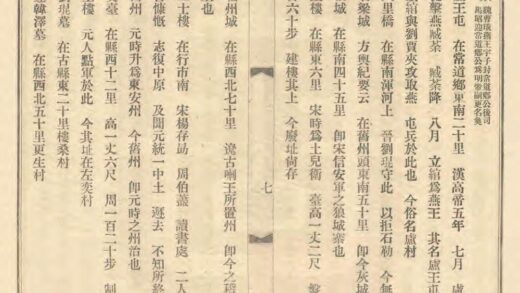 魏曹璜燕王宇子封常道鄉公後司
馬昭迎常道鄉公為明帝嗣更名奐
王屯 在常道鄉東南二十里 漢高帝五年 七月 盧
擊燕臧荼 臧荼降 八月 立綰為燕王 其名盧王屯
綰與劉賈夾攻取燕 屯兵於此也 今俗名盧村
里橋 在縣南渾河上 晉劉琨守此 以拒石勒 今無
梁城 方輿紀要云 在舊州頭東南五十里 即今灰城
在縣南四十五里 即宋信安軍之狼城寨也
在縣東六里 宋時為土兒衛 臺高一丈二尺 盤
六十步 建樓其上 今廢址尚存
七
州城 在縣西北七十里 遼古喃王所置州 即今之
士樓 在行市南 宋楊存 周伯 讀書處 二人
慷慨 志復中原 及聞元統一中土 遯去 不知所終
州 元時升為東安州 今舊州 即元時之州治也
臺 在縣西十二里 高一丈六尺 周一百二十步 制
樓 元人點軍於此 今其址在左奕村
琨墓 在古縣東二十里樓桑村
韓墓 在縣西北五十里更生村